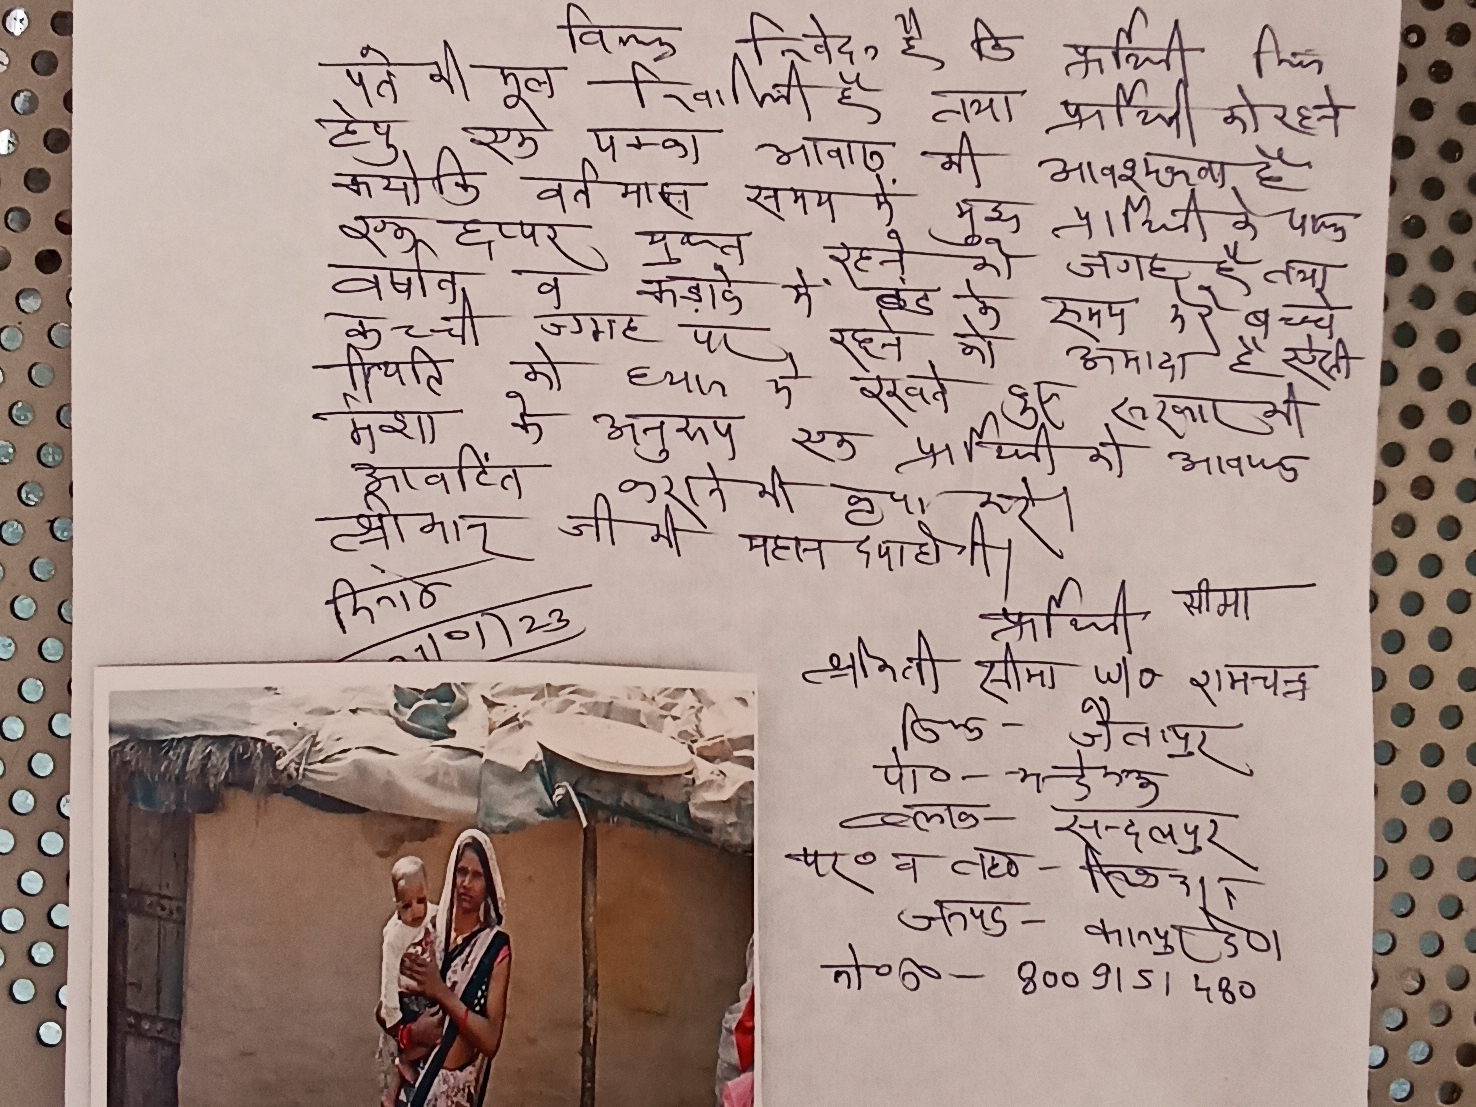 विनम्र निवेदन है कि प्रार्थिनी निम्न
पते की मूल निवासिनी है तथा प्रार्थिनी को रहने
हेतु एक पक्का आवास की आवश्यकता है
क्योकि वर्तमान समय में मुझ प्रार्थिनी के पास
एक छप्पर युक्त रहने की जगह है तथा
वर्षात व कड़ाके में ठंड के समय मेरे बच्चे
कच्ची जगह पर रहने को अमादा है ऐसी
स्थिति को ध्यान मे रखते हुए सरकार की
मंशा के अनुरूप एक प्रार्थिनी को आवास
आवटिंत कराने की कृपा करे।
श्रीमान जी की महान दया होगी।
दिनांक
/01/23
प्रार्थिनी सीमा
श्रीमती सीमा W/o रामचन्द्र
नि0 - जैतापुर
पो0 -
ब्लाक - सन्दलपुर
पर0 व तह0 - सिकन्दरा
जनपद - कानपुर दे0
मो0न0 - 8009151480